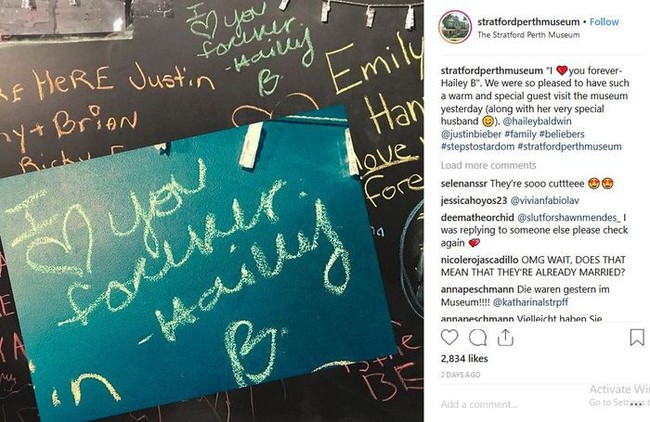 I ♡ you
forever
-Hailey
B.
Emily
RE HeRE Justin
ny + BriAN
Han
Ricky
love
Fore
I ♡ you
forever.
-Hailey
B.
in
the
BE
stratfordperthmuseum • Follow
The Stratford Perth Museum
stratfordperthmuseum "I ❤️you forever-
Hailey B". We were so pleased to have such
a warm and special guest visit the museum
yesterday (along with her very special
husband 😊). @haileybaldwin
@justinbieber #family #beliebers
#stepstostardom #stratfordperthmuseum
Load more comments
selenanssr They're sooo cuttteee 😍😍
jessicahoyos23 @vivianfabiolav
deematheorchid @slutforshawnmendes_ I
was replying to someone else please check
again 💓
nicolerojascadillo OMG WAIT, DOES THAT
MEAN THAT THEY'RE ALREADY MARRIED?
annapeschmann Die waren gestern im
Museum!!!! @katharinalstrpff
annapeschmann Vielleicht haben Sie
2,834 likes
2 DAYS AGO
Add a comment...
Activate Wi
Go to Settings t